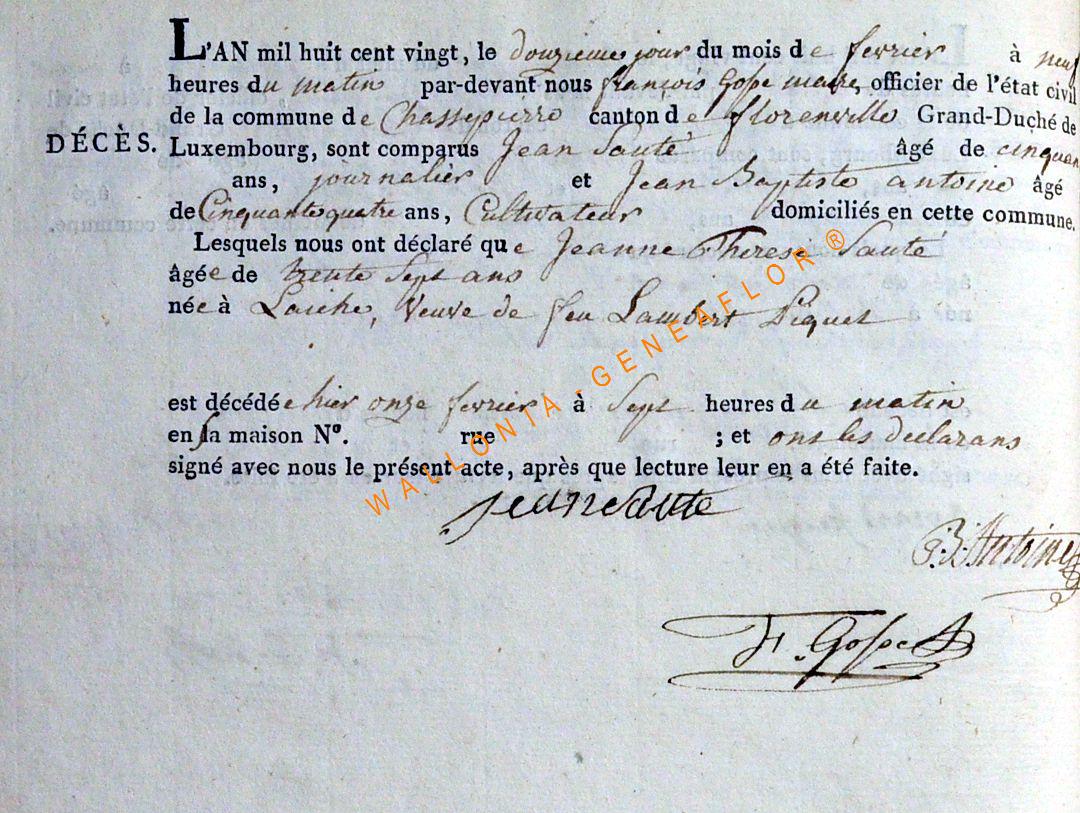 L'AN mil huit cent vingt, le douzieme jour du mois de fevrier à neuf
heures du matin par-devant nous françois Gosse maire, officier de l'état civil
de la commune de Chassepierre canton de florenville Grand-Duché de
DÉCÈS. Luxembourg, sont comparus Jean Sauté âgé de cinquan
ans, journalier et Jean Baptiste antoine âgé
de Cinquante quatre ans, Cultivateur domiciliés en cette commune.
Lesquels nous ont déclaré que Jeanne Therese Sauté
âgée de trente Sept ans
née à Laiche, Veuve de feu Lambert Piquet
est décédée hier onze fevrier à Sept heures du matin
en sa maison N°. rue ; et ont les declarans
signé avec nous le présent acte, après que lecture leur en a été faite.
jean Saute
J.B. Antoine
F. Gosse
WALLONIA-GENEAFLOR ®